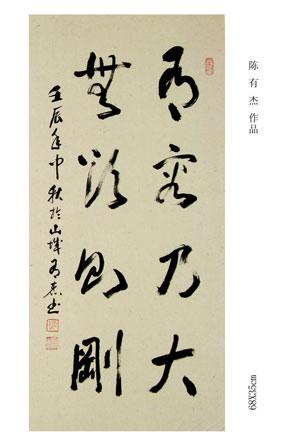 有容乃大
無欲則剛
壬辰年中秋於山城有杰書
陈有杰作品
68X35cm